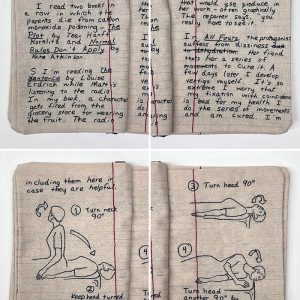 I read two books in
a row in which the
parents die from carbon
monoxide poisoning. The
Plot by Jean Hanff
Korelitz and Normal
Rules Don't Apply by
Kate Atkinson
S I'm reading
Sentence by Louise
Erdrich while Matt's
listening to the radio
In my book, a character
gets flifted from the
grocery store for wearing
the fruit. The radio
that would use produce in
her work
The reporter says, you
really have to see it.
In All Fours, the protagonist
suffers from dizziness due
dehydration. Her friend
texts her a series of
movements to cure it. A
few days later I develop
vertigo myself. It's so
extreme I worry that
my fixation with coincidence
is bad for my health. I
do the series of movements
and am cured. I'm
including them here in
case they are helpful.
① Turn neck
90°
② Keep head turned
③ Turn head 90°
④
④ Turn head
another 90°